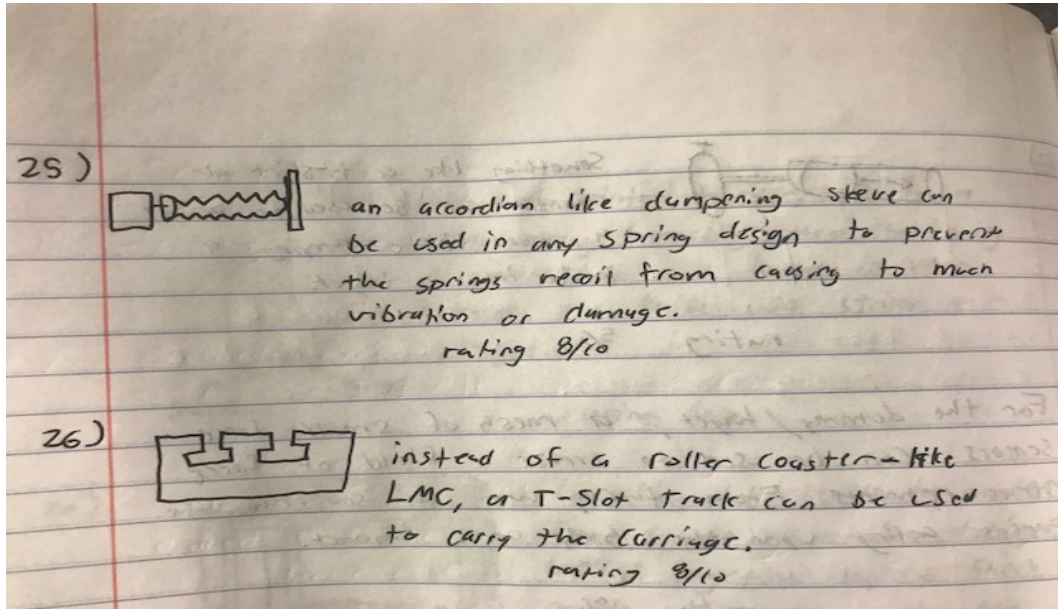 25)
an accordian like dampening sleeve can
be used in any spring design to prevent
the springs recoil from causing to much
vibration or damage.
rating 8/10
26)
instead of a roller coaster-like
LMC, a T-Slot track can be used
to carry the carriage.
rating 8/10